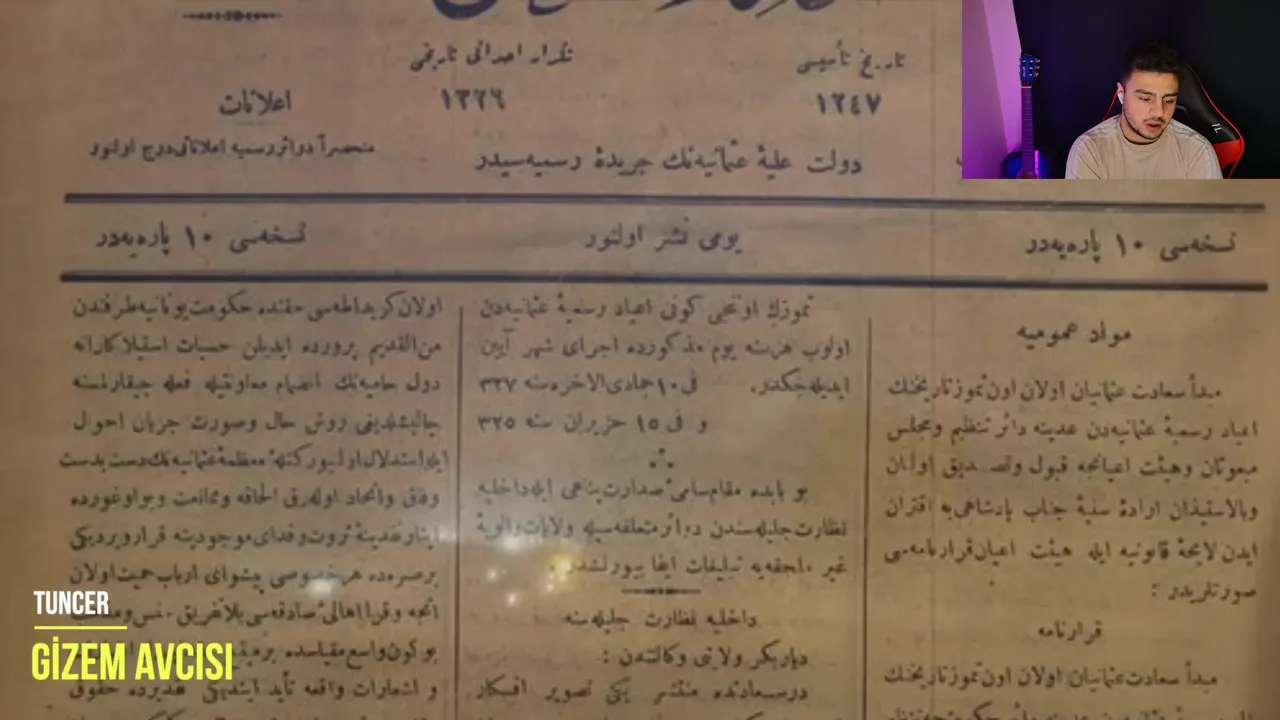 تاریخ تأسیسی
١٢٤٧
تكرار احداثی تاریخی
١٣٢٦
اعلانات
منحصراً دوائر رسمیه اعلاناتی درج اولنور
دولت علیهٔ عثمانیه‌نك جریدهٔ رسمیه‌سیدر
نسخه‌سی ١٠ پاره‌یه‌در
یومی نشر اولنور
نسخه‌سی ١٠ پاره‌یه‌در
مواد عمومیه
مبدأ سعادت عثمانیان اولان اون تموز تاریخنك
اعیاد رسمیهٔ عثمانیه‌دن عدینه دائر تنظیم و مجلس
مبعوثان و هیئت اعیانجه قبول و تصدیق اولنان
و بالاستیذان ارادهٔ سنیهٔ جناب پادشاهی‌یه اقتران
ایدن لایحهٔ قانونیه ایله هیئت اعیان قرارنامه‌سی
صورتلریدر :
قرارنامه
مبدأ سعادت عثمانیان اولان اون تموز تاریخنك
تموزك اوننجی كونی اعیاد رسمیهٔ عثمانیه‌دن
اولوب هر سنه یوم مذكورده اجرای شهر آیین
ایدیله‌جكدر. فی ١٠ جمادی الاخره سنه ٣٢٧
و فی ١٥ حزیران سنه ٣٢٥
بو بابده مقام سامیٔ صدارت‌پناهی ایله داخلیه
نظارت جلیله‌سندن دوائر متعلقه‌سیله ولایات و الویهٔ
غیر ملحقه‌یه تبلیغات ایفا بیورلمشدر
داخلیه نظارت جلیله‌سنه
دیاربكر ولایتی وكالتندن :
درسعادتده منتشر یكی تصویر افكار
اولان كرید اطه‌سی حقنده حكومت یونانیه طرفندن
من القدیم پرورده ایدیلن حسیات استیلاكارانه
دول حامیه‌نك انضمام معاونتیله فعله چیقارلمسنه
چالیشلدیغی روش حال و صورت جریان احوال
ایله استدلال اولنیور كتلهٔ معظمهٔ عثمانیه‌نك دست بدست
وفاق و اتحاد اوله‌رق الحاقه و ممانعت و بو اوغورده
ایثار نقدینهٔ ثروت و فدای موجودیته قرار ویردیكی
بر صره‌ده هر خصوصی پیشوای ارباب حمیت اولان
و اشعارات واقعه تأید ایتدیكی حقوق
TUNCER
GİZEM AVCISI